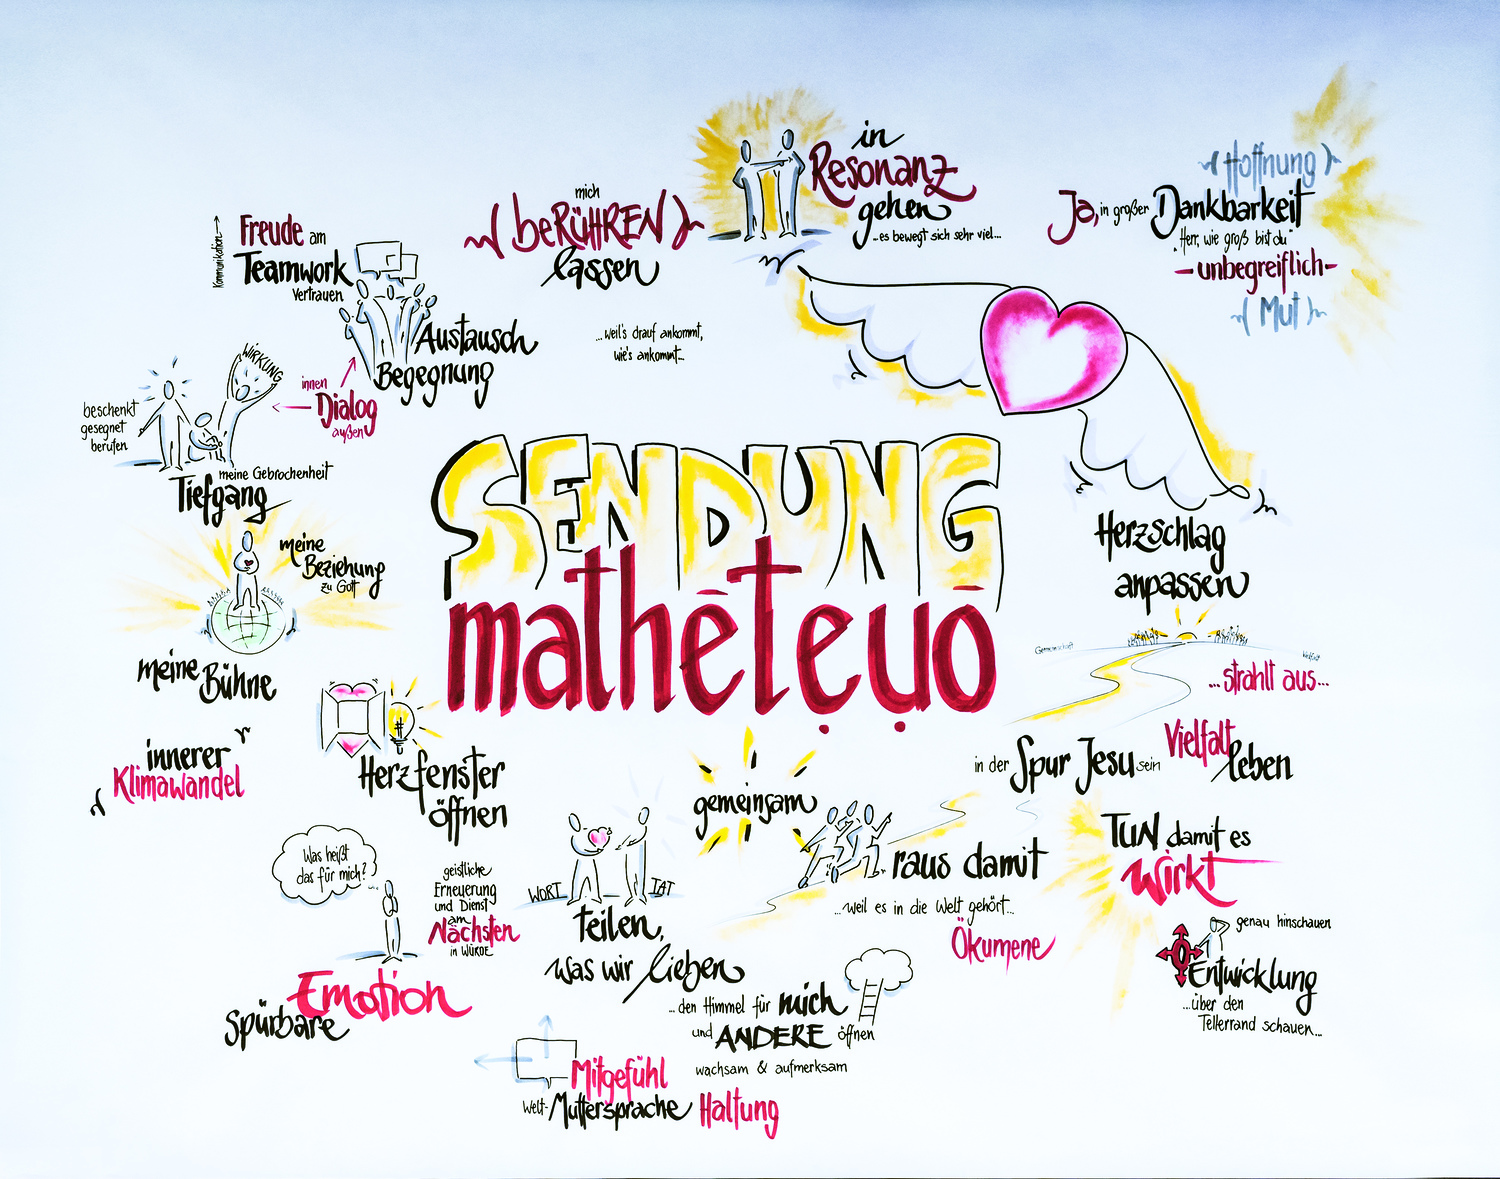 in
Resonanz
gehen
...es bewegt sich sehr viel...
mich
beRÜHREN
lassen
...weil's drauf ankommt,
wie's ankommt...
Hoffnung
Ja, in großer Dankbarkeit
"Herr, wie groß bist du"
-unbegreiflich-
Mut
Kommunikation
Freude am
Teamwork
vertrauen
Austausch
Begegnung
innen
Dialog
außen
WIRKUNG
beschenkt
gesegnet
berufen
meine Gebrochenheit
Tiefgang
meine
Beziehung
zu Gott
meine
Bühne
SENDUNG
mathēteụọ̄
Herzschlag
anpassen
Gemeinschaft
...strahlt aus...
in der Spur Jesu sein
Vielfalt
leben
innerer
Klimawandel
Herzfenster
öffnen
gemeinsam
raus damit
...weil es in die Welt gehört...
Ökumene
TUN damit es
wirkt
genau hinschauen
Entwicklung
...über den
Tellerrand schauen...
Was heißt
das für mich?
geistliche
Erneuerung
und Dienst
am
Nächsten
in WÜRDE
Spürbare
Emotion
WORT
TAT
teilen,
was wir lieben
...den Himmel für mich
und ANDERE öffnen
wachsam & aufmerksam
Haltung
Mitgefühl
Welt-Muttersprache